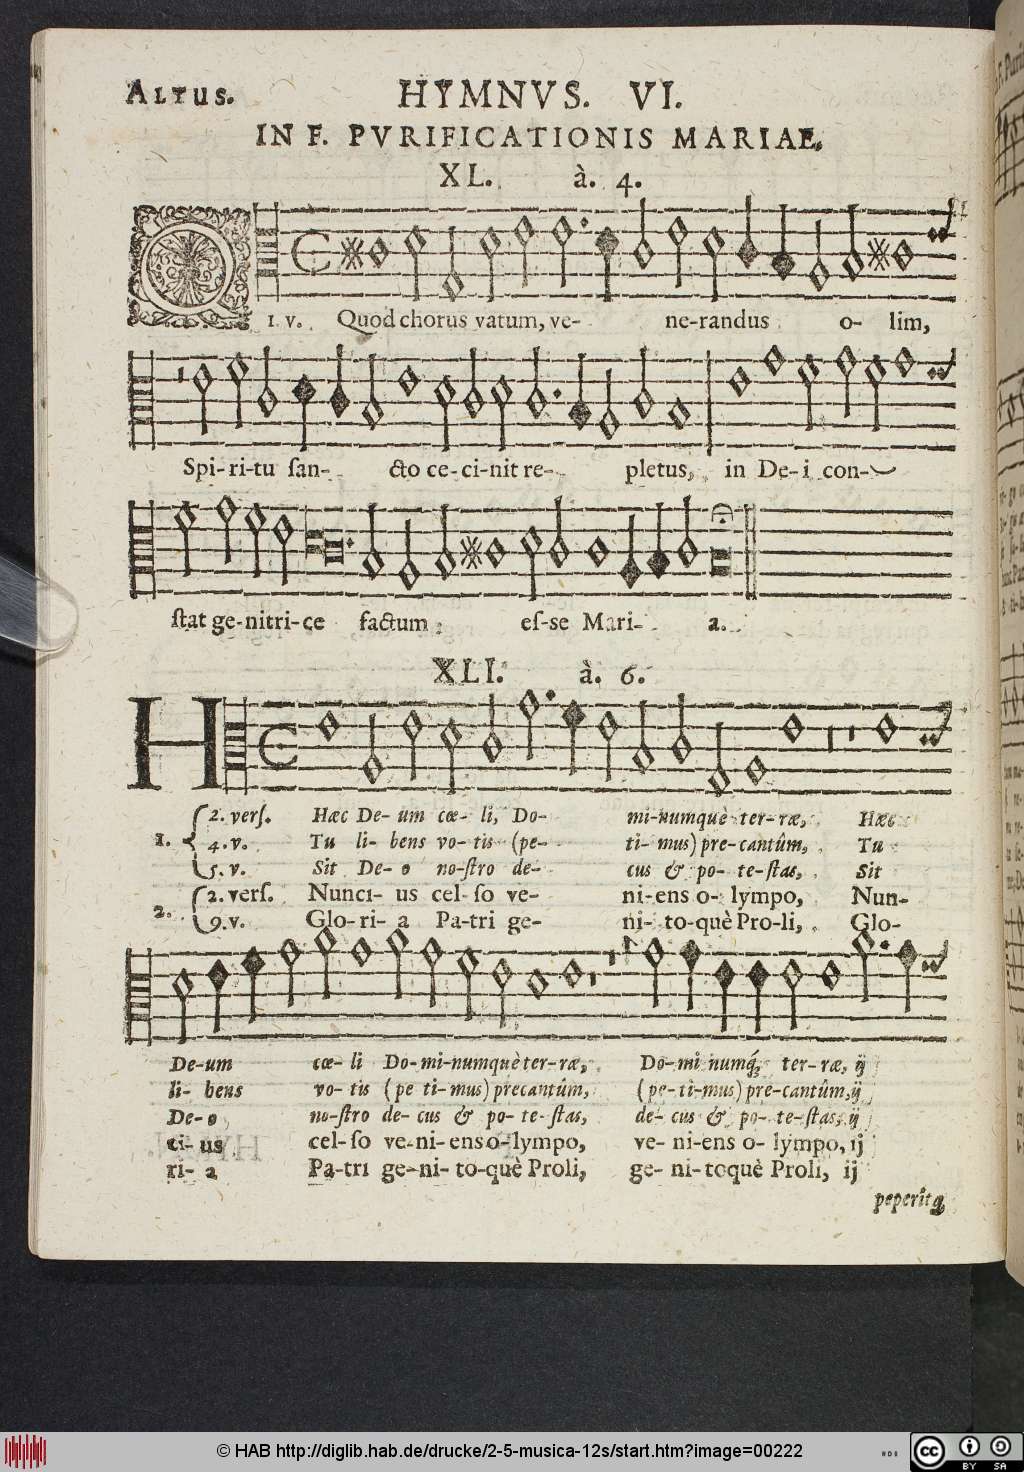 ALTUS. HYMNVS. VI.
IN F. PVRIFICATIONIS MARIAE.
XL. à. 4.
1. v. Quod chorus vatum, ve- ne-randus o- lim,
Spi-ri-tu ſan- cto ce-ci-nit re- pletus, in De-i con-
ſtat ge-nitri-ce factum eſ-se Mari- a.
XLI. à. 6.
H
1. 2. verſ. Hæc De- um cœ- li, Do- mi-numquè ter-ræ, Hæc
4. v. Tu li- bens vo- tis (pe- ti- mus) pre-cantûm, Tu
5. v. Sit De- o no-ſtro de- cus & po- te-ſtas, Sit
2. 2. verſ. Nunci- us cel- ſo ve- ni-ens o- lympo, Nun-
9. v. Glo- ri- a Pa-tri ge- ni- to-què Pro-li, Glo-
De-um cœ- li Do-mi-numquè ter-ræ, Do-mi numq́; ter-ræ, ij
li- bens vo- tis (pe ti-mus) precantûm, (pe-ti-mus) pre-cantûm, ij
De- o no-ſtro de- cus & po- te-ſtas, de- cus & po- te-ſtas, ij
ci- us cel-ſo ve-ni-ens o-lympo, ve- ni-ens o- lympo, ij
ri- a Pa-tri ge-ni- to-què Proli, ge- ni-toquè Proli, ij
peperitq́
© HAB http://diglib.hab.de/drucke/2-5-musica-12s/start.htm?image=00222
cc BY SA